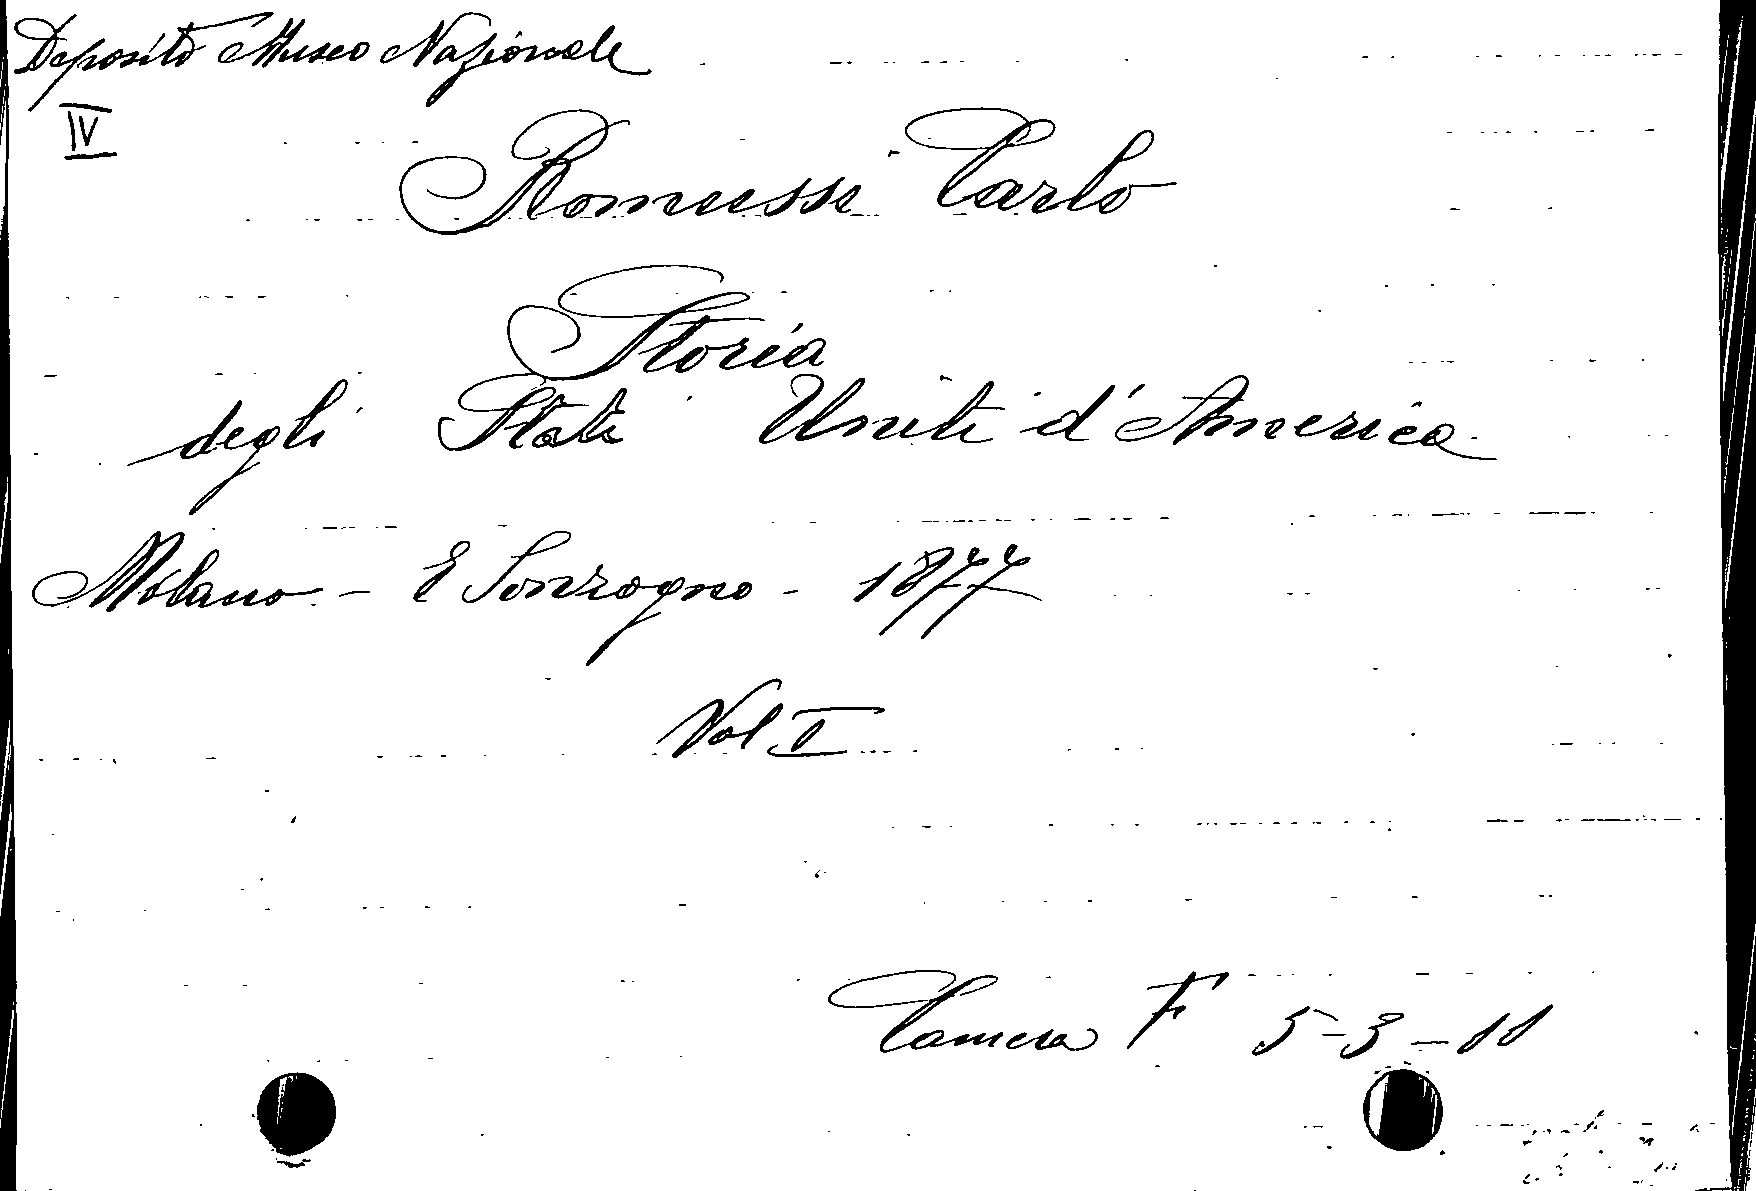 Deposito Museo Nazionale
IV
Romussi Carlo
Storia
degli Stati Uniti d'America
Milano - E Sonzogno - 1877
Vol I
Camera F 5-3-11